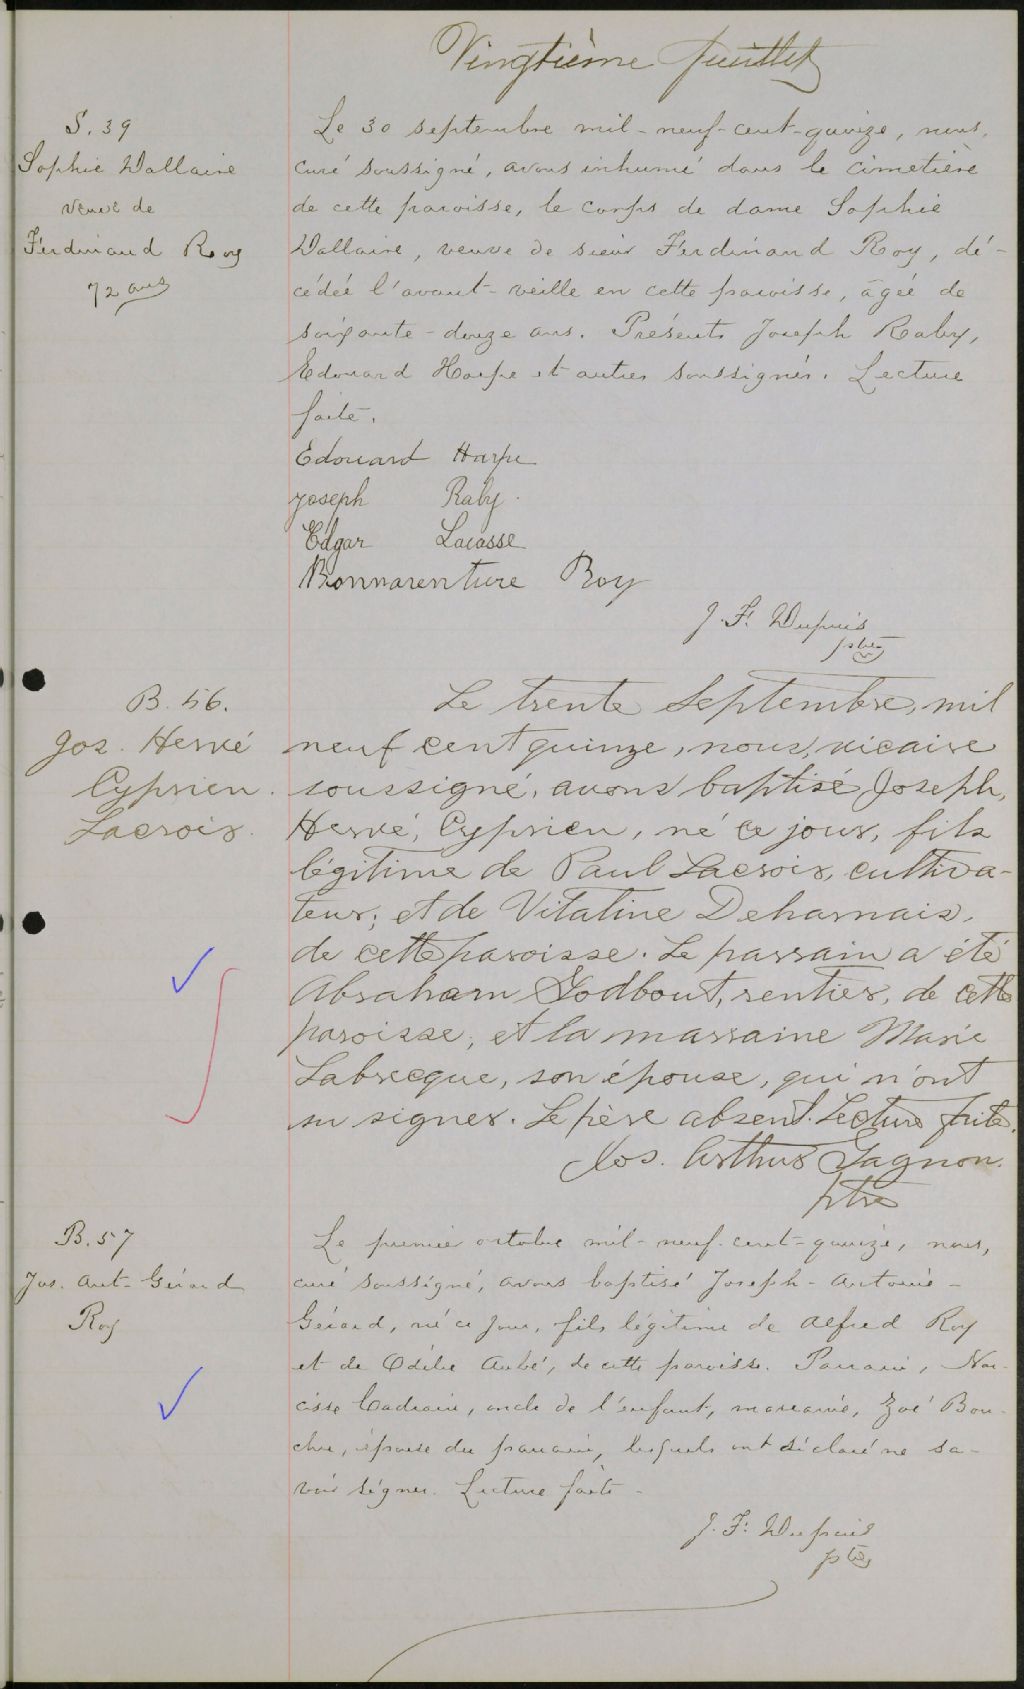 Vingtième feuillet
S. 39
Sophie Vallaire
veuve de
Ferdinand Roy
72 ans
Le 30 septembre mil-neuf-cent-quinze, nous,
curé soussigné, avons inhumé dans le cimetière
de cette paroisse, le corps de dame Sophie
Vallaire, veuve de sieur Ferdinand Roy, dé-
cédée l'avant-veille en cette paroisse, âgée de
soixante-douze ans. Présents Joseph Raby,
Edouard Harpe et autres soussignés. Lecture
faite.
Edouard Harpe
Joseph Raby
Edgar Lacasse
Bonnaventure Roy
J. F. Dupuis
ptre
B. 56.
Jos. Hervé
Cyprien
Lacroix.
Le trente Septembre, mil
neuf cent quinze, nous, vicaire
soussigné, avons baptisé Joseph,
Hervé, Cyprien, né ce jour, fils
légitime de Paul Lacroix, cultiva-
teur, et de Vitaline Deharnais,
de cette paroisse. Le parrain a été
Abraham Godbout, rentier, de cette
paroisse, et la marraine Marie
Labrecque, son épouse, qui n'ont
su signer. Le père absent. Lecture faite.
Jos. Arthur Gagnon
ptre
B. 57
Jos. Ant-Gérard
Roy
Le premier octobre mil-neuf-cent-quinze, nous,
curé soussigné, avons baptisé Joseph-Antoine-
Gérard, né ce jour, fils légitime de Alfred Roy
et de Odélie Aubé, de cette paroisse. Parrain, Nar-
cisse Cadrain, oncle de l'enfant, marraine, Zoé Bou-
cher, épouse du parrain, lesquels ont déclaré ne sa-
voir signer. Lecture faite-
J. F. Dupuis
ptre